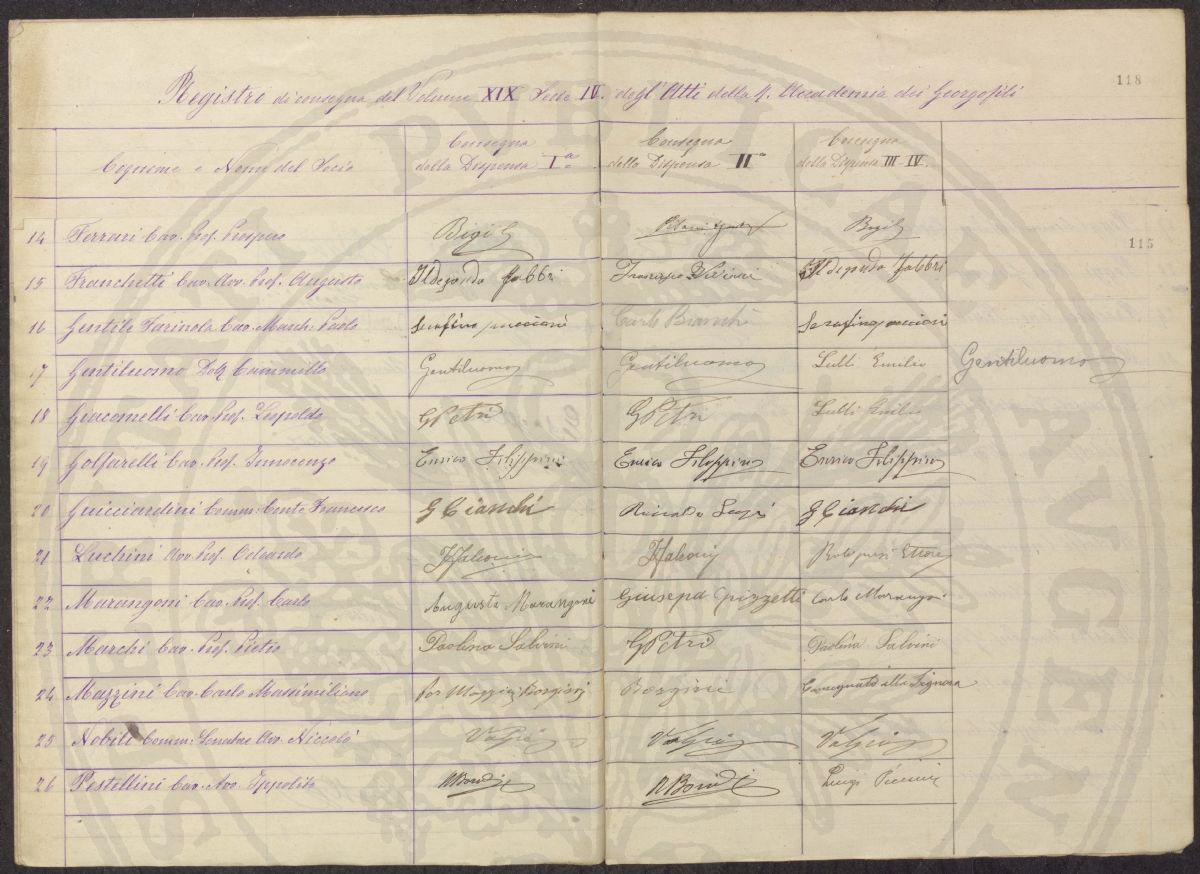 118
Registro di consegna del Volume XIX Serie IV. degl'Atti della R. Accademia dei Georgofili
Cognome e Nome del Socio
Consegna della Dispensa Iª
Consegna della Dispensa IIª
Consegna della Dispensa III-IV.
115
14 Ferrari Cav. Prof. Prospero Bigi Bigi
15 Franchetti Cav. Avv. Prof. Augusto Ildegonda Fabbri Francesco Ildegonda Fabbri
16 Gentile Farinola Cav. March. Paolo Serafino puccioni Carlo Bianchi Serafino puccioni
17 Gentiluomo Dott Cammillo Gentiluomo Gentiluomo Lulli Emilio Gentiluomo
18 Giacomelli Cav. Prof. Leopoldo G Petri G Petri Lulli Emilio
19 Golfarelli Cav. Prof. Innocenzo Enrico Filippini Enrico Filippini Enrico Filippini
20 Guicciardini Comm. Conte Francesco G Cianchi Riccardo G Cianchi
21 Luchini Avv. Prof. Odoardo Ettore
22 Marangoni Cav. Prof. Carlo Augusta Marangoni Giusepa pizzetti Carlo Marangoni
23 Marchi Cav. Prof. Pietro Paolina Salvini G Petri Paolina Salvini
24 Mazzini Cav. Carlo Massimiliano Borgini Consegnato alla Signora
25 Nobili Comm. Senatore Avv. Niccolò
26 Pestellini Cav. Avv. Ippolito Luigi
SENATVS PVBLICAE AVGEN